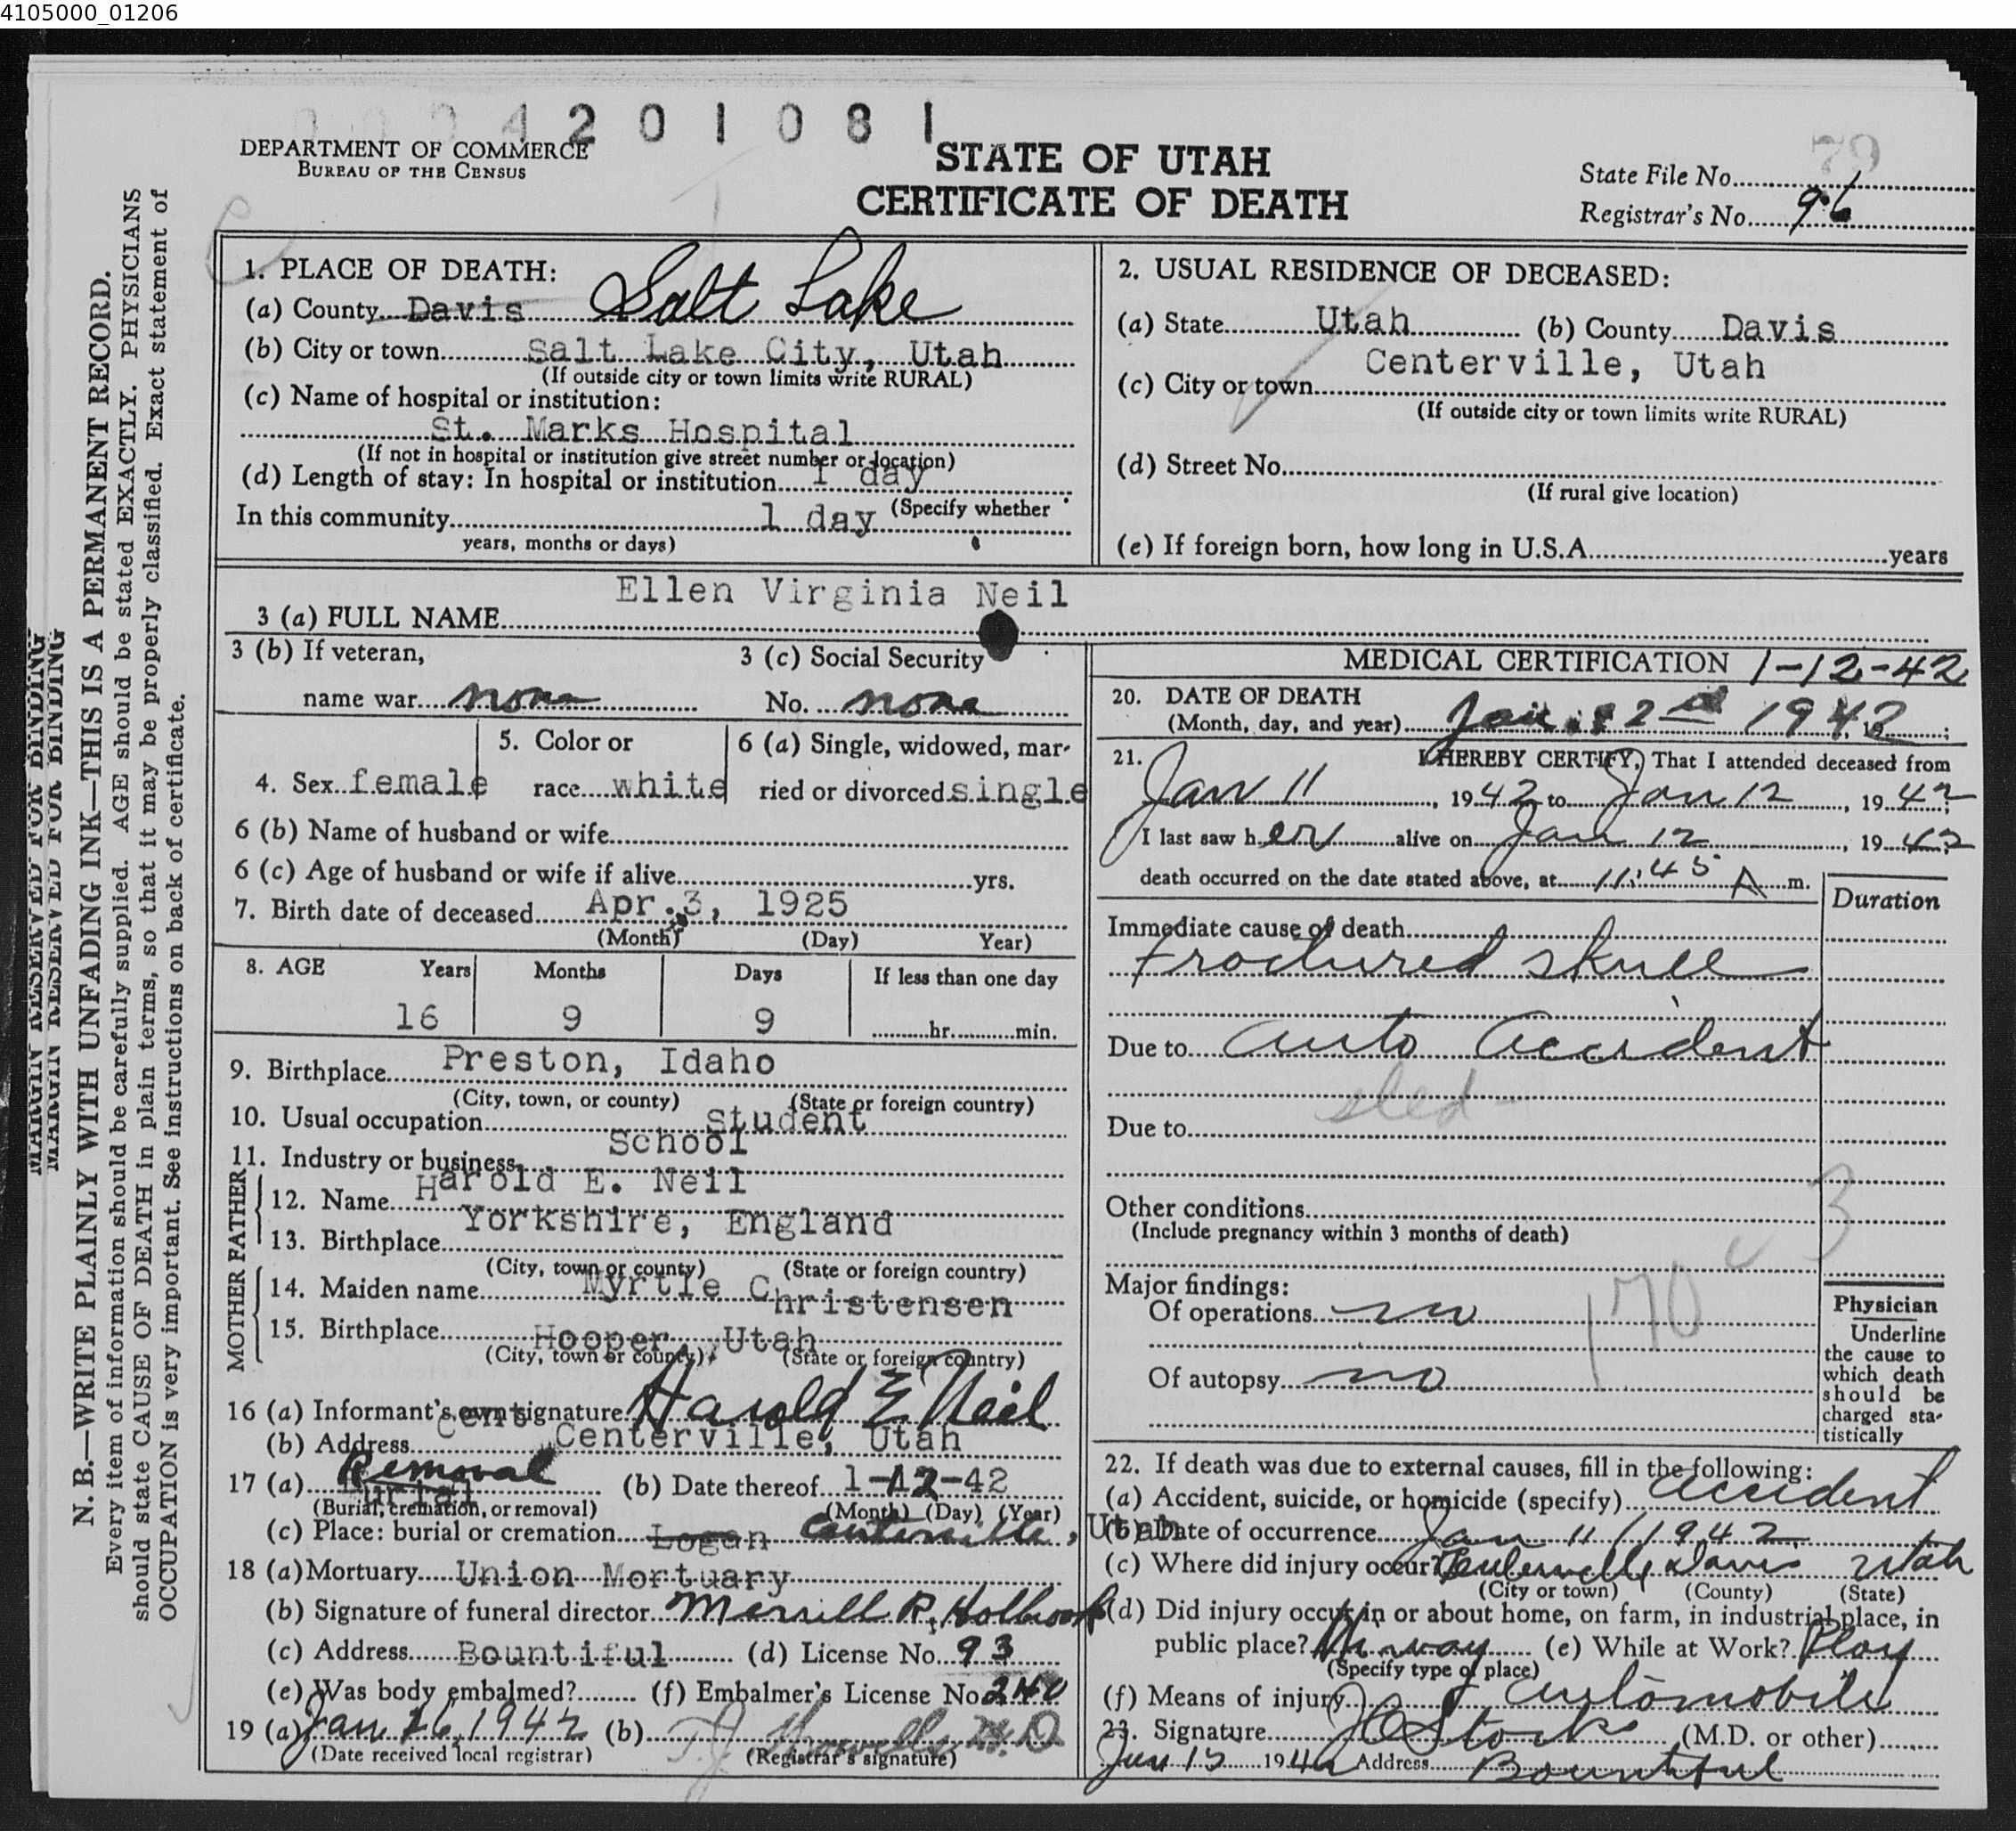 4105000_01206
0004201081
DEPARTMENT OF COMMERCE
BUREAU OF THE CENSUS
STATE OF UTAH
CERTIFICATE OF DEATH
State File No. 79
Registrar's No. 96
MARGIN RESERVED FOR BINDING
MARGIN RESERVED FOR BINDING
N. B.—WRITE PLAINLY WITH UNFADING INK—THIS IS A PERMANENT RECORD.
Every item of information should be carefully supplied. AGE should be stated EXACTLY. PHYSICIANS
should state CAUSE OF DEATH in plain terms, so that it may be properly classified. Exact statement of
OCCUPATION is very important. See instructions on back of certificate.
1. PLACE OF DEATH:
(a) County Davis Salt Lake
(b) City or town Salt Lake City, Utah
(If outside city or town limits write RURAL)
(c) Name of hospital or institution:
St. Marks Hospital
(If not in hospital or institution give street number or location)
(d) Length of stay: In hospital or institution 1 day
In this community 1 day (Specify whether
years, months or days)
2. USUAL RESIDENCE OF DECEASED:
(a) State Utah (b) County Davis
(c) City or town Centerville, Utah
(If outside city or town limits write RURAL)
(d) Street No.
(If rural give location)
(e) If foreign born, how long in U.S.A. years
3 (a) FULL NAME Ellen Virginia Neil
3 (b) If veteran,
name war none
3 (c) Social Security
No. none
4. Sex female
5. Color or
race white
6 (a) Single, widowed, mar-
ried or divorced single
6 (b) Name of husband or wife
6 (c) Age of husband or wife if alive yrs.
7. Birth date of deceased Apr. 3, 1925
(Month) (Day) Year)
8. AGE Years Months Days If less than one day
16 9 9 hr. min.
9. Birthplace Preston, Idaho
(City, town, or county) (State or foreign country)
10. Usual occupation Student
11. Industry or business School
FATHER
12. Name Harold E. Neil
13. Birthplace Yorkshire, England
(City, town or county) (State or foreign country)
MOTHER
14. Maiden name Myrtle Christensen
15. Birthplace Hooper, Utah
(City, town or county) (State or foreign country)
16 (a) Informant's own signature Harold E Neil
(b) Address Cent Centerville, Utah
17 (a) Burial Removal (b) Date thereof 1-12-42
(Burial, cremation, or removal) (Month) (Day) (Year)
(c) Place: burial or cremation Logan Centerville, Utah
18 (a) Mortuary Union Mortuary
(b) Signature of funeral director Merrill R. Holbrook
(c) Address Bountiful (d) License No. 93
(e) Was body embalmed? (f) Embalmer's License No. 240
19 (a) Jan 16, 1942 (b) T. J. Howells M.D
(Date received local registrar) (Registrar's signature)
MEDICAL CERTIFICATION 1-12-42
20. DATE OF DEATH
(Month, day, and year) Jan. 12 1942
21. I HEREBY CERTIFY, That I attended deceased from
Jan 11, 1942 to Jan 12, 1942
I last saw her alive on Jan 12, 1942
death occurred on the date stated above, at 11:45 A m.
Duration
Immediate cause of death
Fractured skull
Due to auto accident
sled
Due to
Other conditions
(Include pregnancy within 3 months of death)
170 c 3
Major findings:
Of operations no
Of autopsy no
Physician
Underline
the cause to
which death
should be
charged sta-
tistically
22. If death was due to external causes, fill in the following:
(a) Accident, suicide, or homicide (specify) accident
(b) Date of occurrence Jan 11 1942
(c) Where did injury occur? Centerville Davis Utah
(City or town) (County) (State)
(d) Did injury occur in or about home, on farm, in industrial place, in
public place? Hiway (e) While at Work? Play
(Specify type of place)
(f) Means of injury automobile
23. Signature J C Stocks (M.D. or other)
Jan 15 1942 Address Bountiful